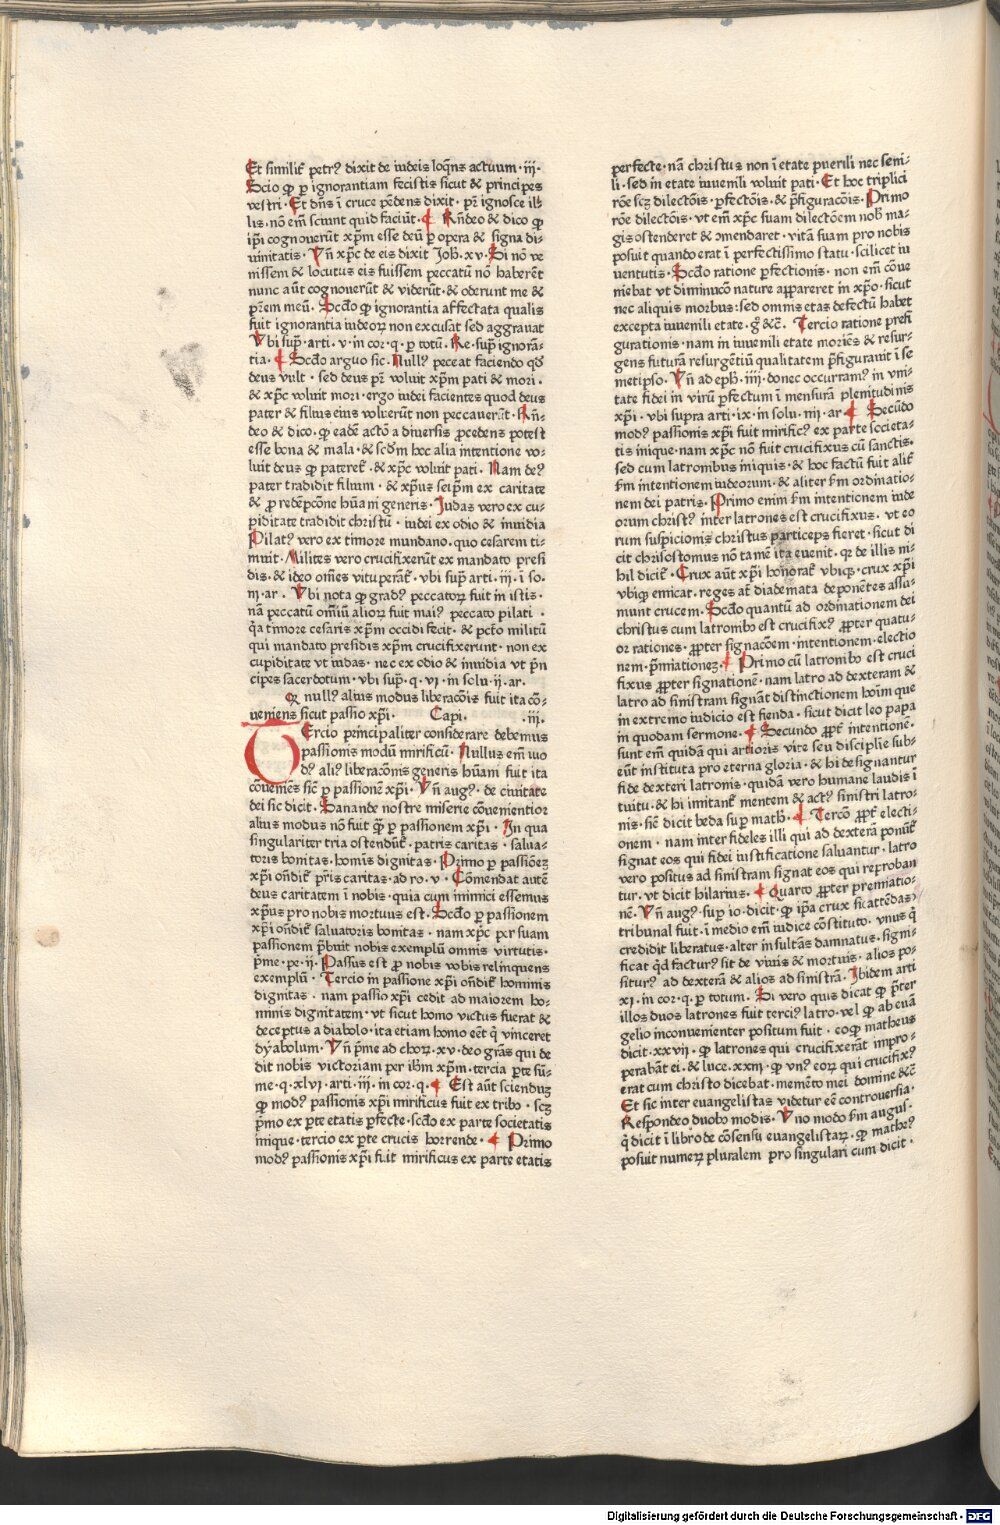 Et similit̃ petrꝰ dixit de iudeis loq̃ns actuum·iij·
Scio ꝙ ꝑ ignorantiam fecistis sicut & principes
vestri·Et dñs ĩ cruce pẽdens dixit·pr̃ ignosce ill̃
lis·nõ em̃ sciunt quid faciũt· Rñdeo & dico ꝙ
ip̃i cognouerũt xp̃m esse deũ ꝑ opera & signa di-
uinitatis·Vñ xp̃c de eis dixit Joh̃·xv·Si nõ ve
nissem & locutus eis fuissem peccatũ nõ haberẽt
nunc aũt cognouerũt & viderũt·& oderunt me &
pr̃em meũ·Scd̃o ꝙ ignorantia affectata qualis
fuit ignorantia iudeoꝝ non excusat sed aggrauat
Vbi sup̃·arti·v·in cor·q·ꝑ totũ·Re·sup̃ ignorã-
tia· Scd̃o arguo sic·Nullꝰ peccat faciendo qd̃
deus vult·sed deus pr̃ voluit xp̃m pati & mori·
& xp̃c voluit mori·ergo iudei facientes quod deus
pater & filius eius voluerũt non peccauerũt·Rñ-
deo & dico·ꝙ eadẽ actõ a diuersis ꝓcedens potest
esse bona & mala·& scd̃m hoc alia intentione vo-
luit deus ꝙ pateret̃·& xp̃c voluit pati·Nam deꝰ
pater tradidit filium·& xp̃us seip̃m ex caritate
& ꝓ redẽpcõne hũani generis·Judas vero ex cu-
piditate tradidit christũ·iudei ex odio & inuidia
Pilatꝰ vero ex timore mundano·quo cesarem ti-
muit·Milites vero crucifixerũt ex mandato presi
dis·& ideo om̃es vituperãt̃·vbi sup̃ arti·iij·ĩ so·
iij·ar·Vbi nota ꝙ gradꝰ peccatoꝝ fuit in istis·
nã peccatũ om̃iũ alioꝝ fuit maiꝰ peccato pilati·
q̃a timore cesaris xp̃m occidi fecit·& pct̃o militũ
qui mandato presidis xp̃m crucifixerunt·non ex
cupiditate vt iudas·nec ex odio & inuidia vt pñ
cipes sacerdotum·vbi sup̃·q·vi·in solu·ij·ar·
Qꝛ nullꝰ alius modus liberacõis fuit ita cõ-
ueniens sicut passio xp̃i· Capi· ·iij·
Tercio principaliter considerare debemus
passionis modũ mirificũ·Nullus em̃ mo
dꝰ aliꝰ liberacõnis generis hũani fuit ita
cõueniẽs sic̃ ꝑ passionẽ xp̃i·Vñ augꝰ·de ciuitate
dei sic dicit·Sanande nostre miserie cõuenientior
alius modus nõ fuit q̃ꝫ ꝑ passionem xp̃i·In qua
singulariter tria ostendũt̃·patris caritas·salua-
toris bonitas·homis dignitas·Primo ꝑ passiõeꝫ
xp̃i oñdit̃ pr̃is caritas·ad ro·v·Cõmendat autẽ
deus caritatem ĩ nobis·quia cum inimici essemus
xp̃us pro nobis mortuus est·Scd̃o ꝑ passionem
xp̃i oñdit̃ saluatoris bonitas·nam xp̃c per suam
passionem p̃buit nobis exemplũ omnis virtutis·
p̃me·pe·ij·Passus est ꝓ nobis vobis relinquens
exemplũ·Tercio in passione xp̃i oñdit̃ hominis
dignitas·nam passio xp̃i cedit ad maiorem ho-
minis dignitatem·vt sicut homo victus fuerat &
deceptus a diabolo·ita etiam homo eẽt q̃ vinceret
dyabolum·Vñ p̃me ad choꝝ·xv·deo gr̃as qui de
dit nobis victoriam per ih̃m xp̃m·tercia ꝑte sũ-
me·q·xlvi·arti·iij·in cor·q· Est aũt sciendũꝫ
ꝙ modꝰ passionis xp̃i mirificus fuit ex tribo·scꝫ
p̃mo ex ꝑte etatis ꝑfecte·scd̃o ex parte societatis
inique·tercio ex ꝑte crucis horrende· Primo
modꝰ passionis xp̃i fuit mirificus ex parte etatis
perfecte·nã christus non ĩ etate puerili nec seni-
li·sed in etate iuuenili voluit pati·Et hoc triplici
rõe scꝫ dilectõis·ꝑfectõis·& p̃figuracõis·Primo
rõe dilectõis·vt em̃ xp̃c suam dilectõem nob̃ ma-
gis ostenderet & ↄmendaret·vitã suam pro nobis
posuit quando erat ĩ perfectissimo statu·scilicet iu
uentutis·Scd̃o ratione ꝑfectionis·non em̃ cõue
niebat vt diminucõ nature appareret in xp̃o·sicut
nec aliquis morbus:sed omnis etas defectũ habet
excepta iuuenili etate·gͦ &c̃·Tercio ratione prefi
gurationis·nam in iuuenili etate moriẽs & resur-
gens futurã resurgẽtiũ qualitatem p̃figurauit ĩ se
metip̃so·Vñ ad eph̃·iiij·donec occurramꝰ in vni-
tate fidei in virũ ꝑfectum ĩ mensurã plenitudinis
xp̃i·vbi supra arti·ix·in solu·iij·ar Secũdo
modꝰ passionis xp̃i fuit mirificꝰ ex parte societa-
tis inique·nam xp̃c nõ fuit crucifixus cũ sanctis·
sed cum latronibus iniquis·& hoc factũ fuit alit̃
f̃m intentionem iudeorum·& aliter f̃m ordinatio-
nem dei patris·Primo enim f̃m intentionem iude
orum christꝰ inter latrones est crucifixus·vt eo
rum suspicionis christus particeps fieret·sicut di
cit chrisostomus nõ tamẽ ita euenit·qꝛ de illis ni-
hil dicit̃·Crux aũt xp̃i honorat̃ vbiqꝫ·crux xp̃i
vbiqꝫ emicat·reges at̃ diademata deponẽtes assu-
munt crucem·Scd̃o quantũ ad ordinationem dei
christus cum latronibo est crucifixꝰ ꝓpter quatu-
or rationes·ꝓpter signacõem·intentionem·electio
nem·p̃miationeꝫ· Primo cũ latronibo est cruci
fixus ꝓpter signationẽ·nam latro ad dexteram &
latro ad sinistram signãt distinctionem hoĩm que
in extremo iudicio est fienda·sicut dicit leo papa
in quodam sermone· Secundo ꝓpt̃ intentionẽ·
sunt em̃ quidã qui artioris vite seu discipline sub-
eũt instituta pro eterna gloria·& hi designantur
fide dexteri latronis·quidã vero humane laudis ĩ
tuitu·& hi imitant̃ mentem & actꝰ sinistri latro-
nis·sic̃ dicit beda suꝑ math̃· Tercõ ꝓpt̃ electi-
onem·nam inter fideles illi qui ad dexterã ponũt̃
signat eos qui fidei iustificatione saluantur·latro
vero positus ad sinistram signat eos qui reproban
tur·vt dicit hilarius· Quarto ꝓpter premiatio-
nẽ·Vñ augꝰ·suꝑ io·dicit·ꝙ ip̃a crux si attendas
tribunal fuit·ĩ medio em̃ iudice cõstituto·vnus q̃
credidit liberatus·alter insultãs damnatus·signi-
ficat qd̃ facturꝰ sit de viuis & mortuis·alios po-
siturꝰ ad dexterã & alios ad sinistrã·Ibidem arti
xi·in cor·q·ꝑ totum·Si vero quis dicat ꝙ p̃ter
illos duos latrones fuit terciꝰ latro·vel ꝙ ab euã
gelio inconuenienter positum fuit·eoꝙ matheus
dicit·xxvij·ꝙ latrones qui crucifixerãt impro-
perabãt ei·& luce·xxiij·ꝙ vnꝰ eoꝝ qui crucifixꝰ
erat cum christo dicebat·memẽto mei domine &c̃
Et sic inter euangelistas videtur eẽ controuersia·
Respondeo duobo modis·Vno modo f̃m augus·
q̃ dicit ĩ libro de cõsensu euangelistaꝝ·ꝙ matheꝰ
posuit numeꝝ pluralem pro singulari cum dicit·
Digitalisierung gefördert durch die Deutsche Forschungsgemeinschaft - DFG